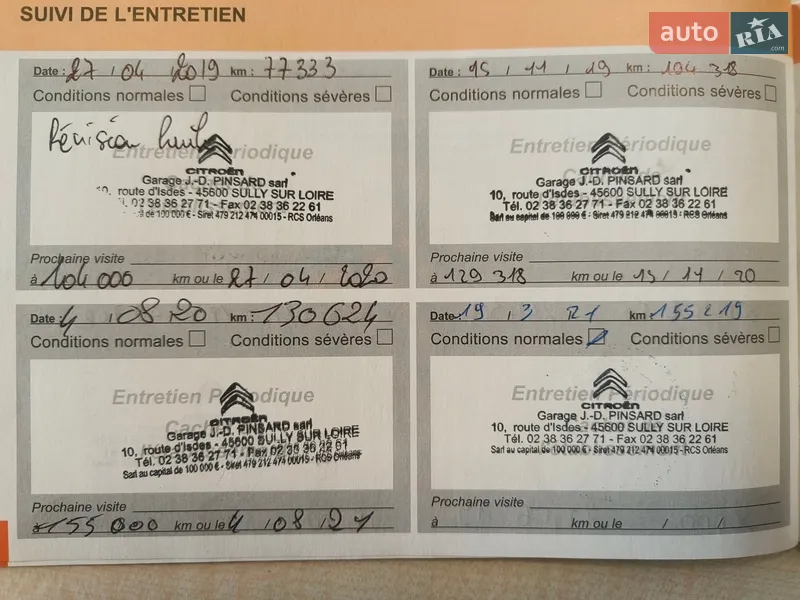 SUIVI DE L'ENTRETIEN
auto RIA .com
Date : 27 / 04 / 2019 km : 77333
Conditions normales Conditions sévères
Révision huile
Entretien Périodique
CITROËN
Garage J.-D. PINSARD sarl
10, route d'Isdes - 45600 SULLY SUR LOIRE
Tél. 02 38 36 27 71 - Fax 02 38 36 22 61
Sarl au capital de 100 000 € - Siret 479 212 474 00015 - RCS Orléans
Prochaine visite
à 104 000 km ou le 27 / 04 / 2020
Date : 15 / 11 / 19 km : 104 318
Conditions normales Conditions sévères
Entretien Périodique
CITROËN
Garage J.-D. PINSARD sarl
10, route d'Isdes - 45600 SULLY SUR LOIRE
Tél. 02 38 36 27 71 - Fax 02 38 36 22 61
Sarl au capital de 100 000 € - Siret 479 212 474 00015 - RCS Orléans
Prochaine visite
à 129 318 km ou le 15 / 11 / 20
Date : 4 / 08 / 20 km : 130624
Conditions normales Conditions sévères
Entretien Périodique
CITROËN
Garage J.-D. PINSARD sarl
10, route d'Isdes - 45600 SULLY SUR LOIRE
Tél. 02 38 36 27 71 - Fax 02 38 36 22 61
Sarl au capital de 100 000 € - Siret 479 212 474 00015 - RCS Orléans
Prochaine visite
à 155 000 km ou le 4 / 08 / 21
Date : 19 / 3 / 21 km : 155219
Conditions normales Conditions sévères
Entretien Périodique
CITROËN
Garage J.-D. PINSARD sarl
10, route d'Isdes - 45600 SULLY SUR LOIRE
Tél. 02 38 36 27 71 - Fax 02 38 36 22 61
Sarl au capital de 100 000 € - Siret 479 212 474 00015 - RCS Orléans
Prochaine visite
à km ou le / /